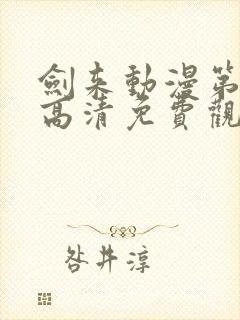 劍來動漫第
高清免費觀
咎井淳